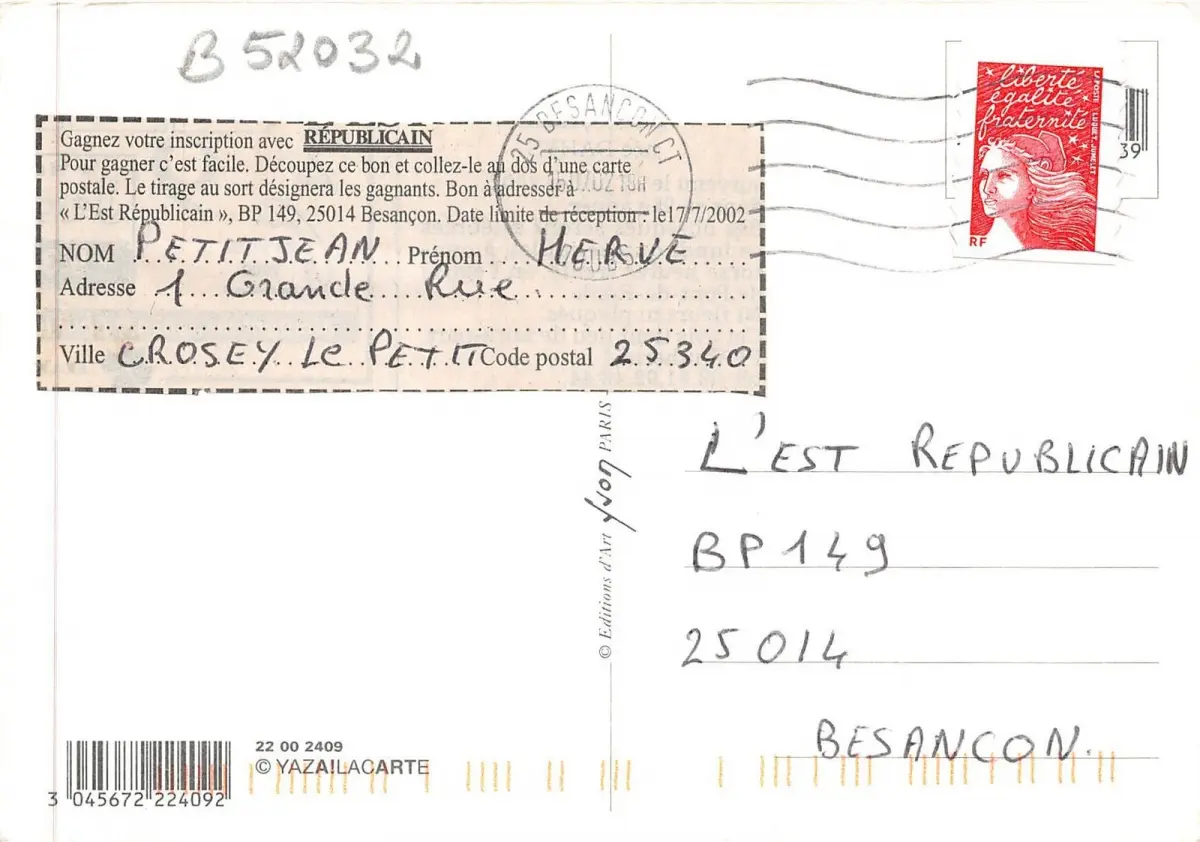 B 52032
liberté
égalité
fraternité
LA POSTE
RF
39
25 BESANCON CT
DOUBS
Gagnez votre inscription avec RÉPUBLICAIN
Pour gagner c'est facile. Découpez ce bon et collez-le au dos d'une carte
postale. Le tirage au sort désignera les gagnants. Bon à adresser à
« L'Est Républicain », BP 149, 25014 Besançon. Date limite de réception : le17/7/2002
NOM PETITJEAN Prénom HERVE
Adresse 1 Grande Rue
Ville CROSEY Le PETIT Code postal 25340
L'EST REPUBLICAIN
BP 149
25014
BESANCON.
© Editions d'Art Yvon PARIS
22 00 2409
© YAZAILACARTE
3 045672 224092